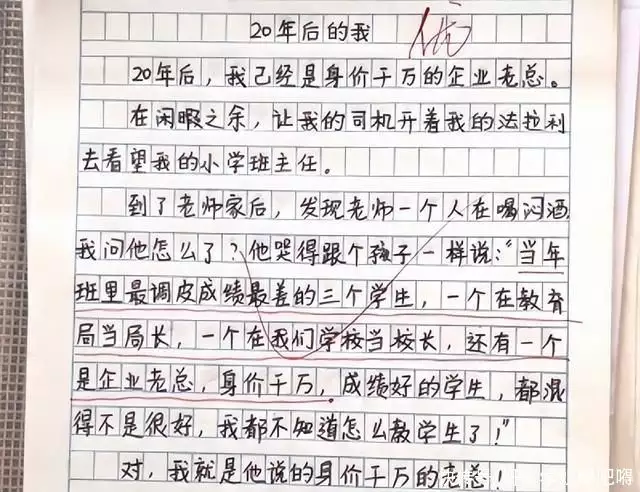 20年后的我 优
20年后，我已经是身价千万的企业老总。
在闲暇之余，让我的司机开着我的法拉利
去看望我的小学班主任。
到了老师家后，发现老师一个人在喝闷酒
我问他怎么了？他哭得跟个孩子一样说："当年
班里最调皮成绩最差的三个学生，一个在教育
局当局长，一个在我们学校当校长，还有一个
是企业老总，身价千万，成绩好的学生，都混
得不是很好，我都不知道怎么教学生了！"
对，我就是他说的身价千万的老总！